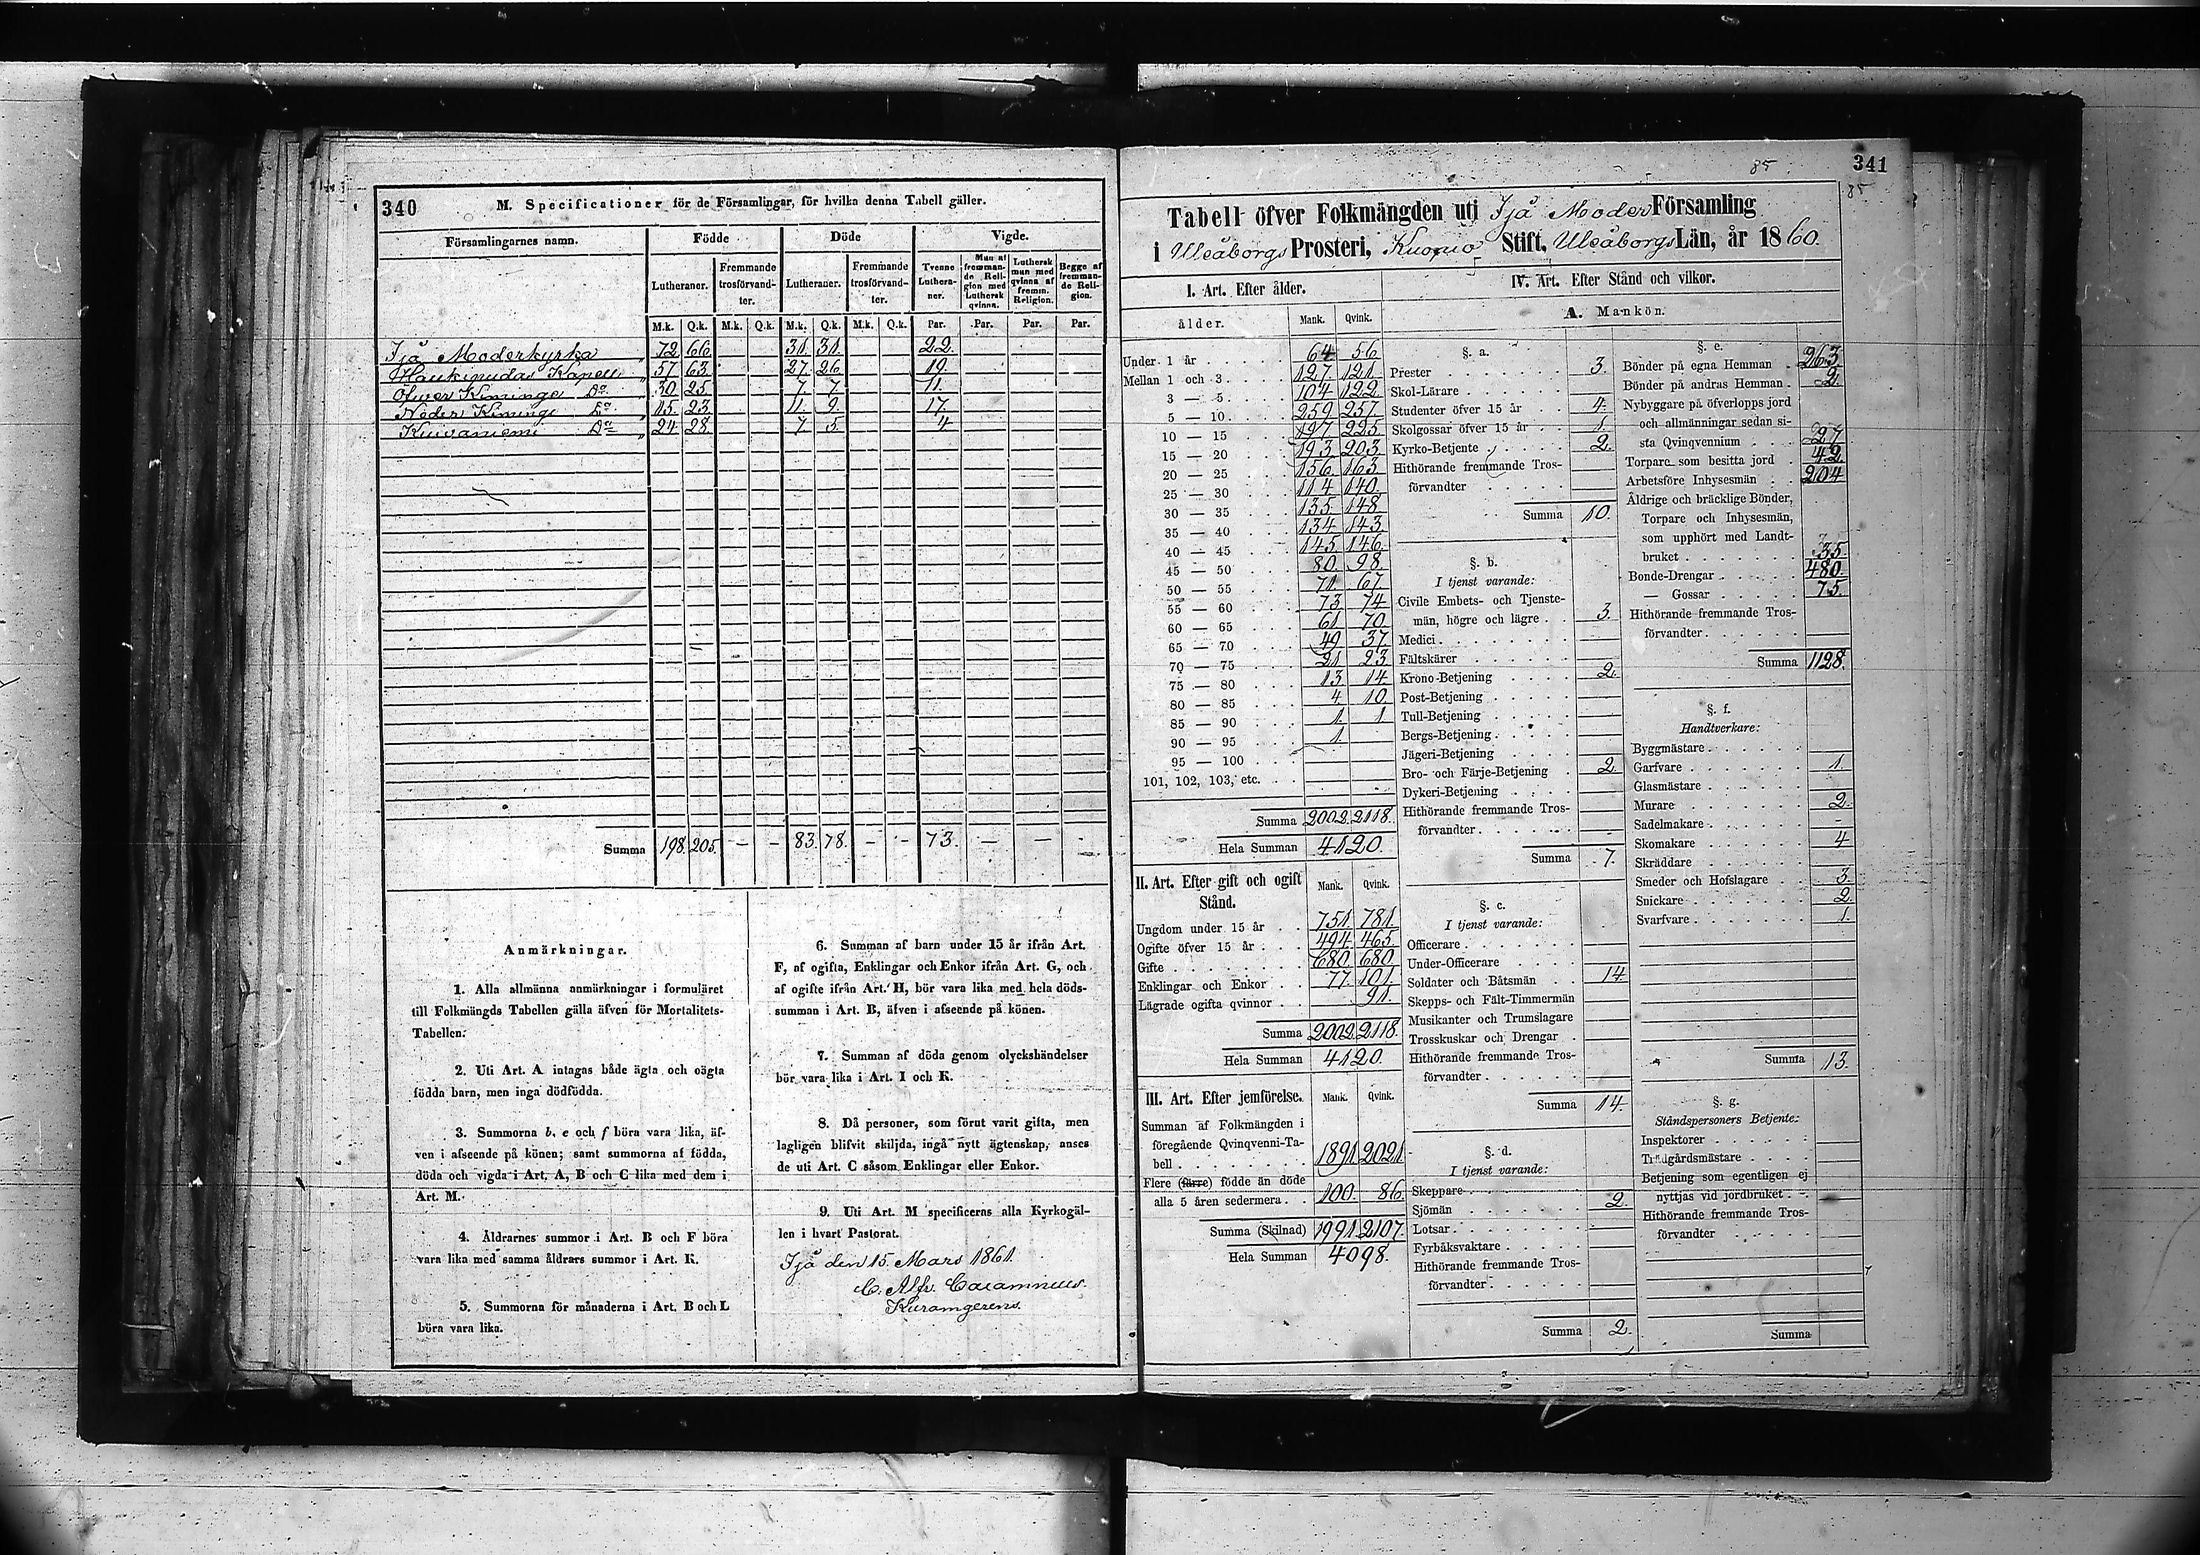 340
M. Specificationer för de Församlingar, för hvilka denna Tabell gäller.
Församlingarnes namn. Födde Döde Vigde.
Lutheraner. Fremmande trosförvandter. Lutheraner. Fremmande trosförvandter. Tvenne Lutheraner. Man af fremmande Religion med Luthersk qvinna. Luthersk man med qvinna af fremm. Religion. Begge af fremmande Religion.
M.k. Q.k. M.k. Q.k. M.k. Q.k. M.k. Q.k. Par. Par. Par. Par.
Ijå Moderkyrka 72 66 31. 31. 22.
Haukipudas Kapell 57 63 27. 26 19.
Öfver Kiminge Do 30 25 7 7 11.
Neder Kiminge Do 15. 23 11. 9. 17.
Kuivaniemi Do 24 28 7. 5. 4
Summa 198. 205. — — 83. 78. — — 73. — — —
Anmärkningar.
1. Alla allmänna anmärkningar i formuläret
till Folkmängds Tabellen gälla äfven för Mortalitets-
Tabellen.
2. Uti Art. A intagas både ägta och oägta
födda barn, men inga dödfödda.
3. Summorna b, e och f böra vara lika, äf-
ven i afseende på könen; samt summorna af födda,
döda och vigda i Art. A, B och C lika med dem i
Art. M.
4. Åldrarnes summor i Art. B och F böra
vara lika med samma åldrars summor i Art. K.
5. Summorna för månaderna i Art. B och L
böra vara lika.
6. Summan af barn under 15 år ifrån Art.
F, af ogifta, Enklingar och Enkor ifrån Art. G, och
af ogifte ifrån Art. H, bör vara lika med hela döds-
summan i Art. B, äfven i afseende på könen.
7. Summan af döda genom olyckshändelser
bör vara lika i Art. I och K.
8. Då personer, som förut varit gifta, men
lagligen blifvit skiljda, ingå nytt ägtenskap, anses
de uti Art. C såsom Enklingar eller Enkor.
9. Uti Art. M specificeras alla Kyrkogäl-
len i hvart Pastorat.
Ijå den 15. Mars 1861.
C. Alfr.
85 341
85
Tabell öfver Folkmängden uti Ijå Moder Församling
i Uleåborgs Prosteri, Kuopio Stift, Uleåborgs Län, år 1860.
I. Art. Efter ålder.
ålder. Mank. Qvink.
Under 1 år 64 56
Mellan 1 och 3 127. 121.
3 — 5 104 122.
5 — 10 259 257
10 — 15 197 225
15 — 20 193 203
20 — 25 156. 163
25 — 30 114 140.
30 — 35 135. 148
35 — 40 134 143.
40 — 45 145. 146.
45 — 50 80. 98.
50 — 55 71 67
55 — 60 73 74
60 — 65 61 70
65 — 70 49 37
70 — 75 21 23
75 — 80 13. 14.
80 — 85 4 10
85 — 90 1. 1
90 — 95 1.
95 — 100
101, 102, 103, etc.
Summa 2002. 2118.
Hela Summan 4120.
II. Art. Efter gift och ogift Stånd. Mank. Qvink.
Ungdom under 15 år 751. 781.
Ogifte öfver 15 år 494 465.
Gifte 680 680
Enklingar och Enkor 77. 101.
Lägrade ogifta qvinnor 91.
Summa 2002. 2118.
Hela Summan 4120.
III. Art. Efter jemförelse. Mank. Qvink.
Summan af Folkmängden i
föregående Qvinqvenni-Ta-
bell 1891 2021
Flere (färre) födde än döde
alla 5 åren sedermera 100. 86.
Summa (Skilnad) 1991 2107.
Hela Summan 4098.
IV. Art. Efter Stånd och vilkor.
A. Mankön.
§. a.
Prester 3.
Skol-Lärare
Studenter öfver 15 år 4.
Skolgossar öfver 15 år 1.
Kyrko-Betjente 2.
Hithörande fremmande Tros-
förvandter
Summa 10.
§. b.
I tjenst varande:
Civile Embets- och Tjenste-
män, högre och lägre 3.
Medici
Fältskärer
Krono-Betjening 2.
Post-Betjening
Tull-Betjening
Bergs-Betjening
Jägeri-Betjening
Bro- och Färje-Betjening 2.
Dykeri-Betjening
Hithörande fremmande Tros-
förvandter
Summa 7.
§. c.
I tjenst varande:
Officerare
Under-Officerare
Soldater och Båtsmän 14.
Skepps- och Fält-Timmermän
Musikanter och Trumslagare
Trosskuskar och Drengar
Hithörande fremmande Tros-
förvandter
Summa 14.
§. d.
I tjenst varande:
Skeppare
Sjömän 2.
Lotsar
Fyrbåksvaktare
Hithörande fremmande Tros-
förvandter
Summa 2.
§. e.
Bönder på egna Hemman 263
Bönder på andras Hemman 2.
Nybyggare på öfverlopps jord
och allmänningar sedan si-
sta Qvinqvennium 27
Torpare som besitta jord 42
Arbetsföre Inhysesmän 204
Åldrige och bräcklige Bönder,
Torpare och Inhysesmän,
som upphört med Landt-
bruket 35
Bonde-Drengar 480.
— Gossar 75.
Hithörande fremmande Tros-
förvandter
Summa 1128.
§. f.
Handtverkare:
Byggmästare
Garfvare 1.
Glasmästare
Murare 2.
Sadelmakare -
Skomakare 4
Skräddare
Smeder och Hofslagare 3.
Snickare 2.
Svarfvare 1.
Summa 13.
§. g.
Ståndspersoners Betjente:
Inspektorer
Trädgårdsmästare
Betjening som egentligen ej
nyttjas vid jordbruket
Hithörande fremmande Tros-
förvandter
Summa